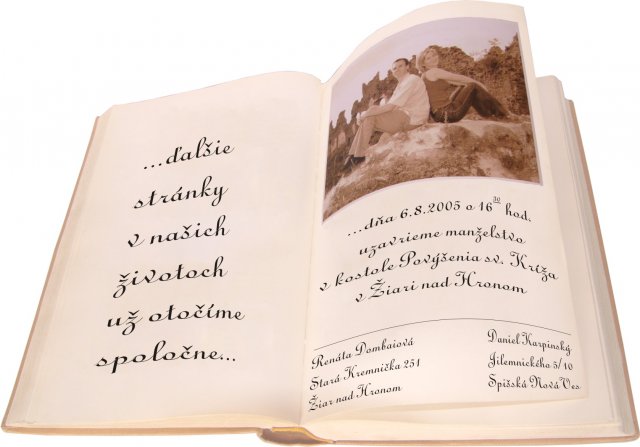 ...ďalšie
stránky
v našich
životoch
už otočíme
spoločne...
...dňa 6.8.2005 o 16³⁰ hod.
uzavrieme manželstvo
v kostole Povýšenia sv. Kríža
v Žiari nad Hronom
Renáta Dombaiová
Stará Kremnička 251
Žiar nad Hronom
Daniel Karpinský
Jilemnického 5/10
Spišská Nová Ves